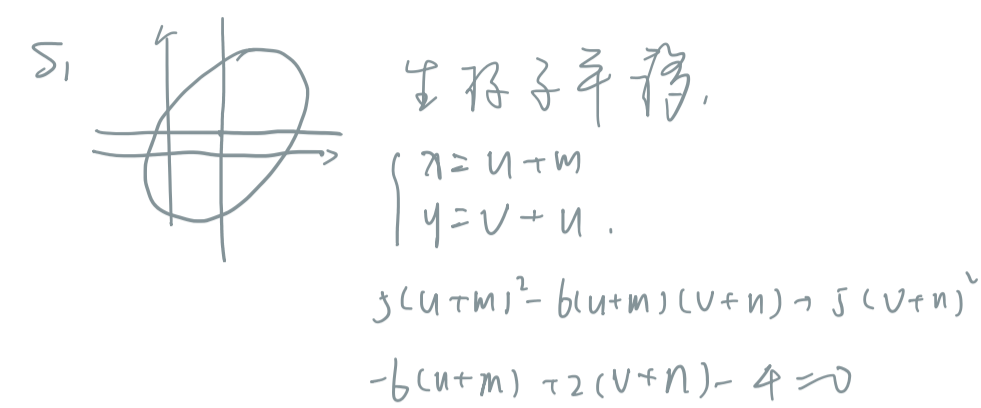 S₁
坐标系平移.
x=u+m
y=v+u.
5(u+m)²-6(u+m)(v+n)+5(v+n)²
-6(u+m)+2(v+n)-4=0